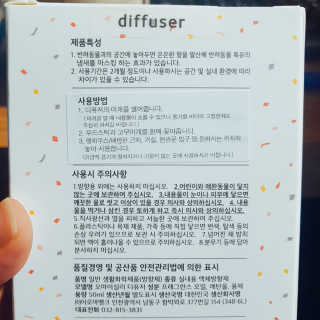 diffuser
제품특성
1. 반려동물과의 공간에 놓아두면 은은한 향을 발산해 반려동물 특유의
냄새를 마스킹 하는 효과가 있습니다.
2. 사용기간은 2개월 정도이나 사용하시는 공간 및 실내 환경에 따라
차이가 있을 수 있습니다.
사용방법
1. 디퓨저의 마개를 열어줍니다.
2. 우드스틱과 고무마개를 함께 꽂아줍니다.
사용시 주의사항
1.방향용 외에는 사용하지 마십시오. 2.어린이와 애완동물이 닿지
않는 곳에 보관하여 주십시오. 3.내용물이 눈이나 피부에 닿으면
깨끗한 물로 씻고 이상이 있을 경우 의사와 상의하십시오. 4. 내용
물을 먹거나 삼킨 경우 토하게 하고 즉시 의사와 상의하십시오.
5.직사광선과 열을 피하고 서늘한 곳에 보관하여 주십시오.
6.플라스틱이나 목재 제품, 가죽 등에 직접 닿으면 변색, 탈색 등의
손상 우려가 있으므로 보전 시 주의하여 주십시오. 7.넘어져 새
되면 액이 흘러나올 수 있으므로 주의하십시오. 8.분무기 등에 담아
분사하지 마십시오.
품질경영 및 공산품 안전관리법에 의한 표시
품명 일반 생활화학제품(방향제) 종류 실내용 액체방향제
모델명 오마이실리 디퓨저 성분 프로그랜스 오일, 에탄올, 물
용량 50ml 생산년월 별도표시 생산국명 대한민국 생산회사명
대표전화 032-815-3831